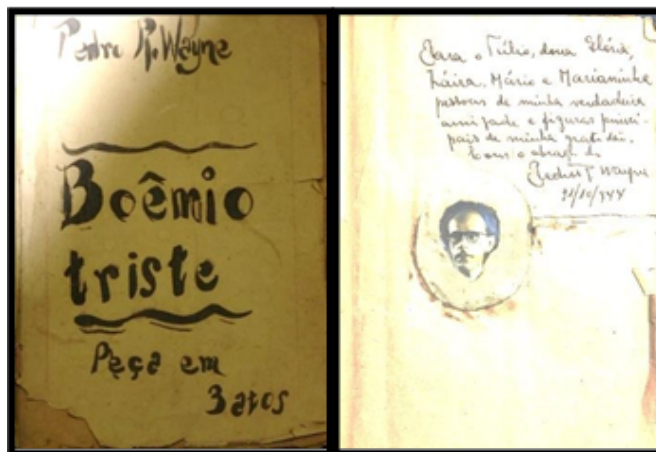 Pedro R. Wayne
Boêmio
triste
Peça em
3 atos
Para o Túlio, dona Elósia,
Záira, Mário e Marianinha
pessoas de minha verdadeira
amizade e figuras princi-
pais de minha gratidão.
Com o abraço do
Pedro R. Wayne